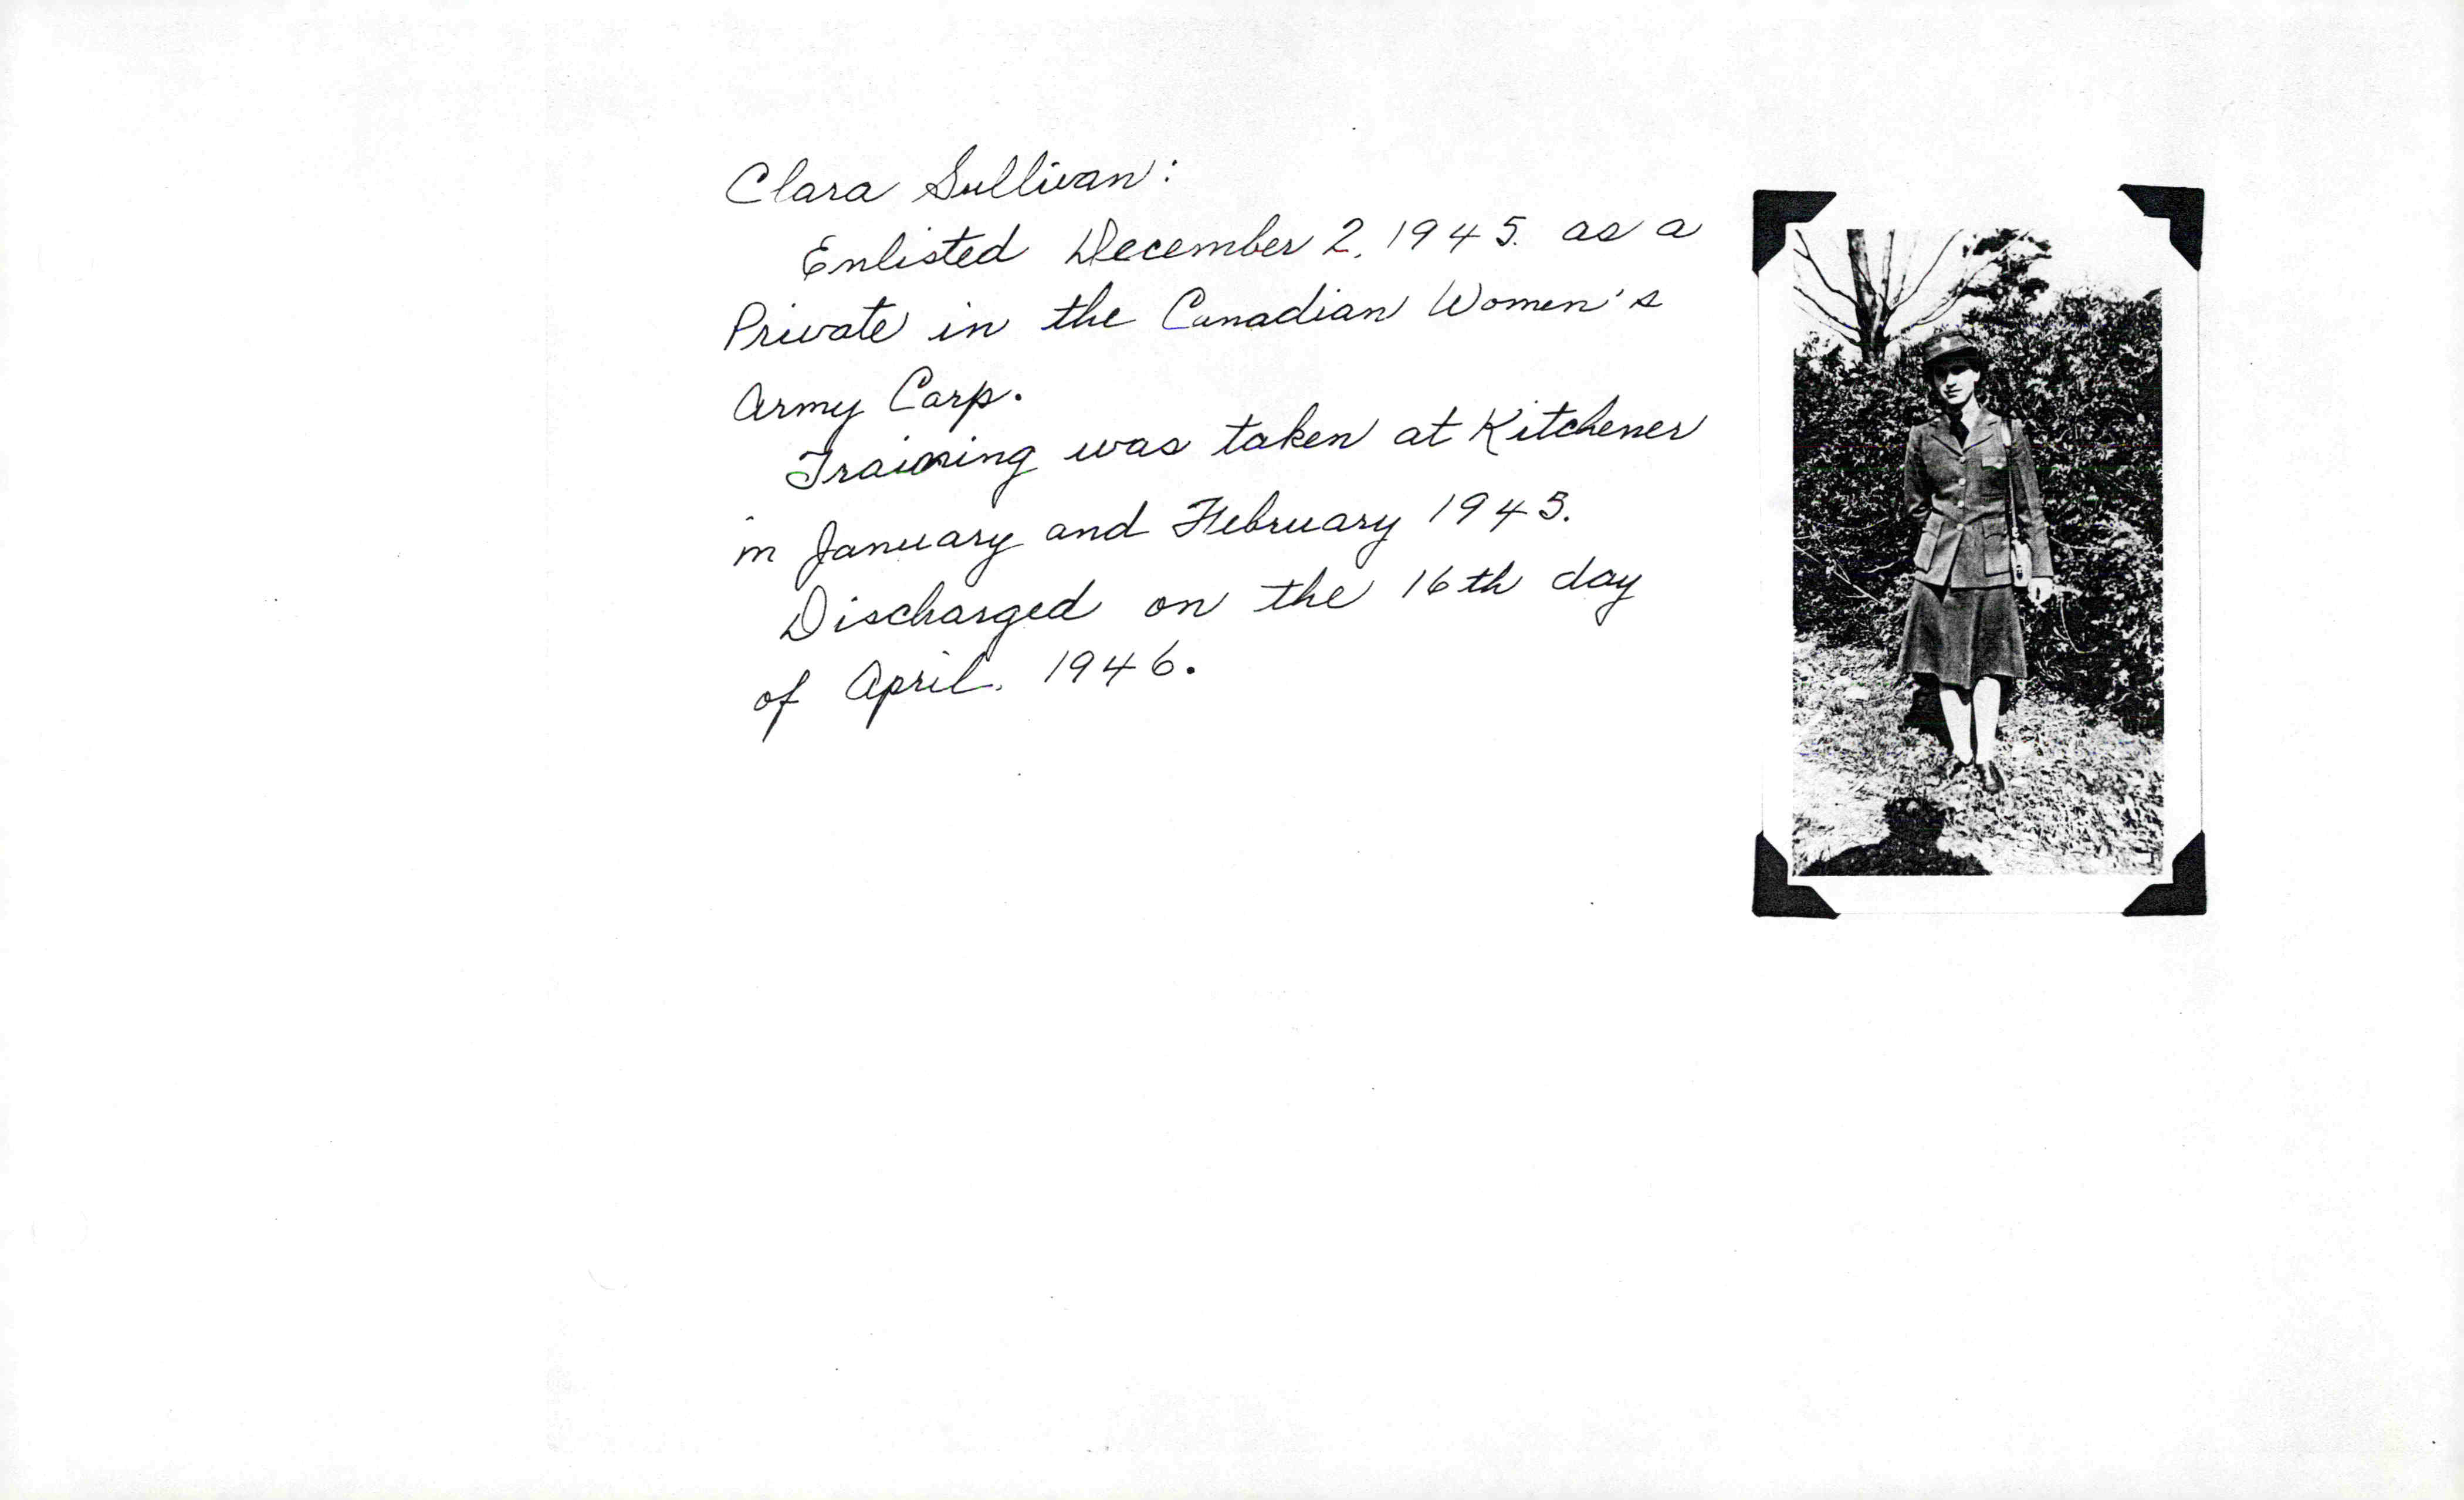 Clara Sullivan:
Enlisted December 2, 1945. as a
Private in the Canadian Women's
Army Corp.
Training was taken at Kitchener
in January and February 1945.
Discharged on the 16th day
of April. 1946.